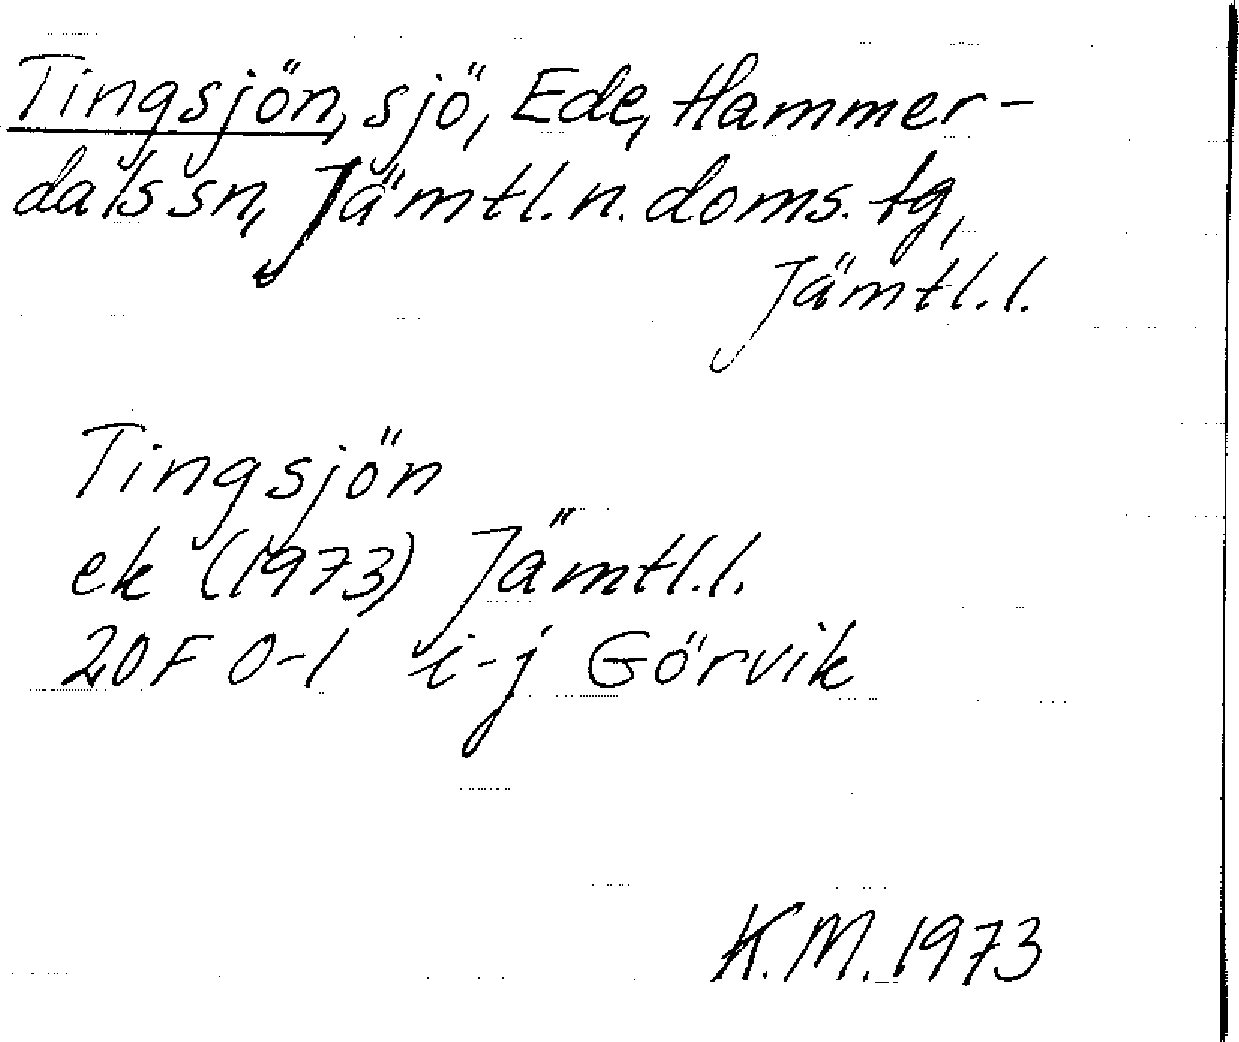 Tingsjön, sjö, Ede, Hammer-
dals sn, Jämtl. n. doms. tg,
Jämtl. l.
Tingsjön
ek (1973) Jämtl. l.
20F 0-1 i-j Görvik
K.M. 1973